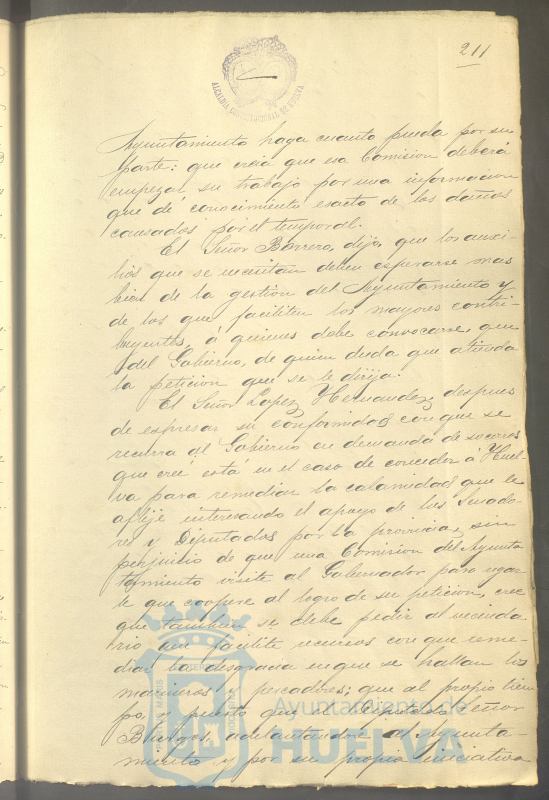 211
ALCALDÍA CONSTITUCIONAL DE HUELVA
Ayuntamiento haga cuanto pueda por su
parte: que creia que esa Comision deberá
empezar su trabajo por una informacion
que dé conocimiento esacto de los daños
causados por el temporal.
El Señor Barrero, dijo, que los auxi-
lios que se necesitan deben esperarse mas
bien de la gestion del Ayuntamiento y
de los que faciliten los mayores contri-
buyentes, á quienes debe convocarse, que
del Gobierno, de quien duda que atienda
la peticion que se le dirija.
El Señor Lopez Hernandez, despues
de espresar su conformidad con que se
recurra al Gobierno en demanda de socorros
que cree está en el caso de conceder á Huel-
va para remediar la calamidad que le
aflije interesando el apoyo de los Senado-
res y Diputados por la provincia, sin
perjuicio de que una Comision del Ayunta-
tamiento visite al Gobernador para rogar-
le que coopere al logro de su peticion, cree
que tambien se debe pedir al vecinda-
rio que facilite recursos con que reme-
diar la desgracia en que se hallan los
marineros y pescadores; que al propio tiem-
po, y puesto que el Diputado Señor
Búrgos, adelantandose al Ayunta-
miento y por su propia iniciativa
Ayuntamiento de
HUELVA